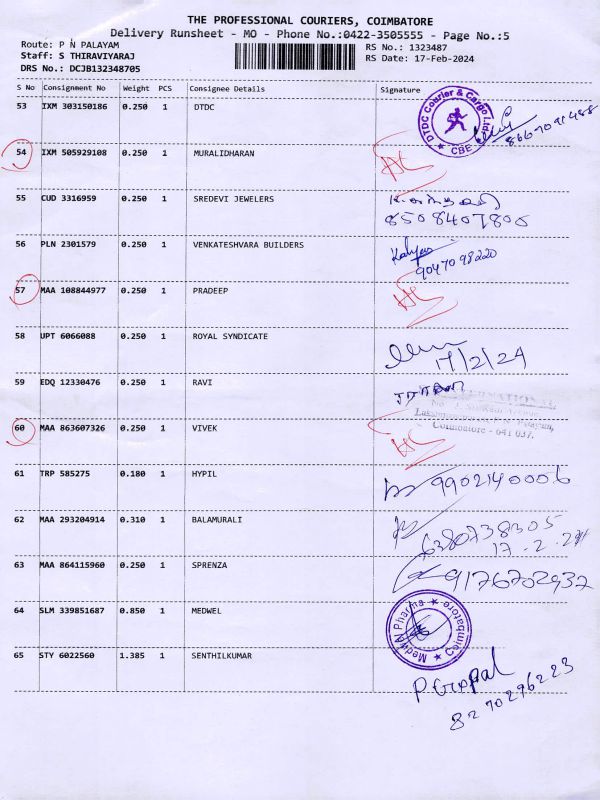 THE PROFESSIONAL COURIERS, COIMBATORE
Delivery Runsheet - MO - Phone No.:0422-3505555 - Page No.:5
Route: P N PALAYAM
Staff: S THIRAVIYARAJ
DRS No.: DCJB132348705
RS No.: 1323487
RS Date: 17-Feb-2024
S No Consignment No Weight PCS Consignee Details Signature
53 IXM 303150186 0.250 1 DTDC
DTDC Courier & Cargo Ltd.
CBE
8667091488
54 IXM 505929108 0.250 1 MURALIDHARAN
55 CUD 3316959 0.250 1 SREDEVI JEWELERS
8508407806
56 PLN 2301579 0.250 1 VENKATESHVARA BUILDERS
9047098220
57 MAA 108844977 0.250 1 PRADEEP
58 UPT 6066088 0.250 1 ROYAL SYNDICATE
17/2/24
59 EDQ 12330476 0.250 1 RAVI
60 MAA 863607326 0.250 1 VIVEK
Coimbatore - 641 037.
61 TRP 585275 0.180 1 HYPIL
9902140006
62 MAA 293204914 0.310 1 BALAMURALI
6380738305
17-2-24
63 MAA 864115960 0.250 1 SPRENZA
9176702937
64 SLM 339851687 0.850 1 MEDWEL
Medwel Pharma
Coimbatore
65 STY 6022560 1.385 1 SENTHILKUMAR
P Gopal
8270296223